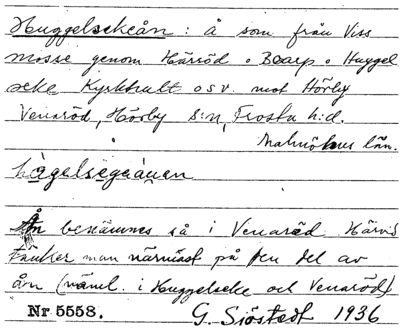 Huggelsekeån: å som från Viss
mosse genom Härröd o Bcarp o Huggel
seke Kyrkhult osv. mot Hörby
Venaröd, Hörby s:n, Frosta h:d.
Malmöhus län.
hågelsegeånen
Ån benämnes så i Venaröd
tänker man närmast på den del av
ån (näml. i Huggelseke och Venaröd)
Nr 5558. G. Sjöstedt 1936